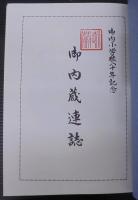 御内小学校八十年記念
御内蔵連誌